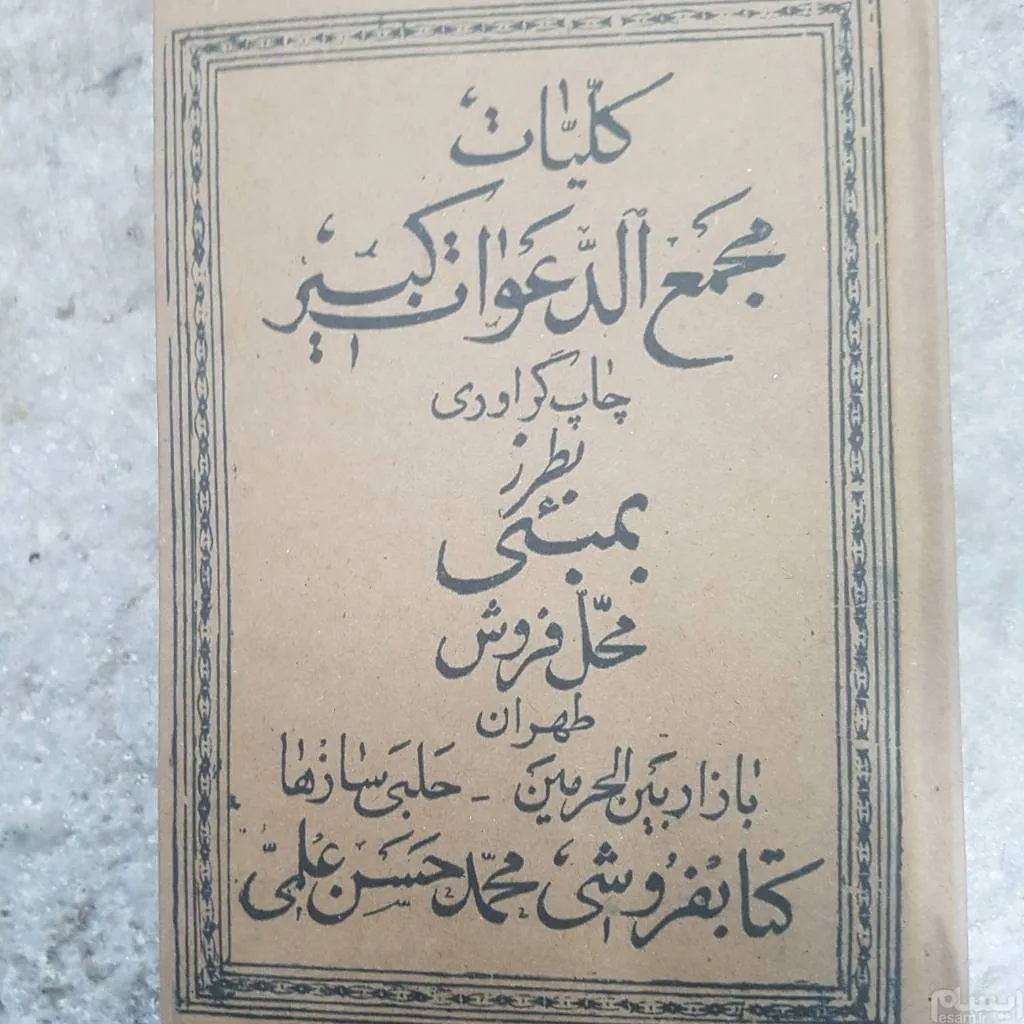 کلّیات
مجمع الدَّعَوات کبیر
چاپ گراوری
بطرز
بمبئی
محلّ فروش
طهران
بازار بین الحرمین - حلبی سازها
کتابفروشی محمّد حسن علمی
ایسام
esam.ir